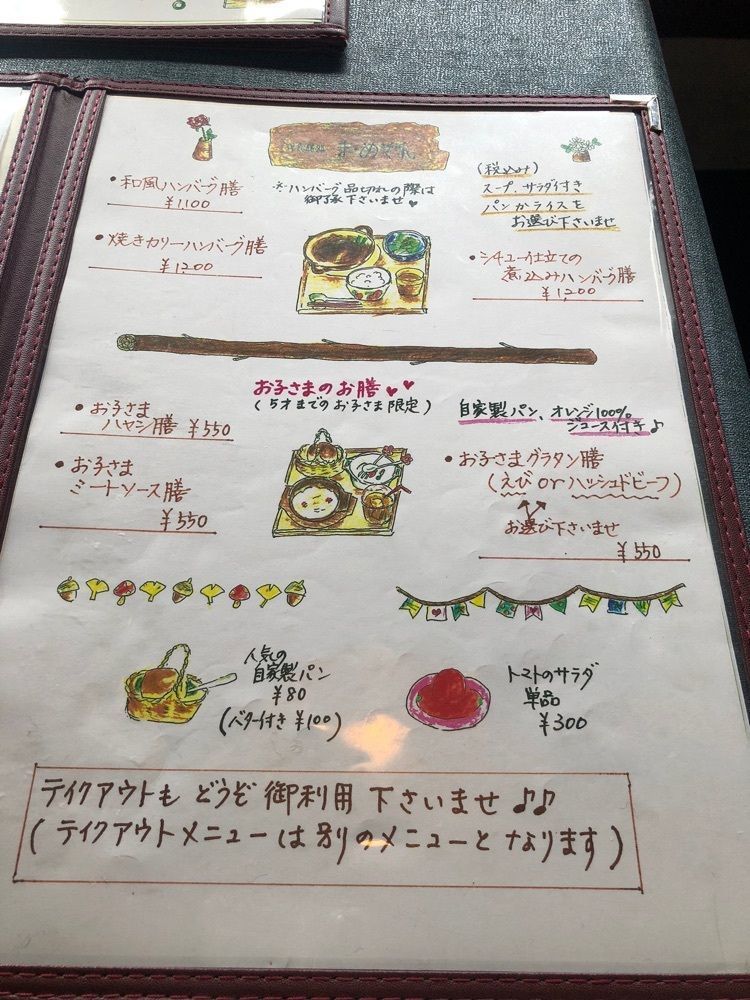 ・和風ハンバーグ膳
¥1,100
※ハンバーグ品切れの際は
御了承下さいませ♥
(税込み)
スープ、サラダ付き
パンかライスを
お選び下さいませ
・焼きカリーハンバーグ膳
¥1,200
・シチュー仕立ての
煮込みハンバーグ膳
¥1,200
お子さまのお膳♥♥
(5才までのお子さま限定)
自家製パン、オレンジ100%
ジュース付き♪
・お子さま
ハヤシ膳 ¥550
・お子さま
ミートソース膳
¥550
・お子さまグラタン膳
(えび or ハッシュドビーフ)
お選び下さいませ
¥550
人気の
自家製パン
¥80
(バター付き ¥100)
トマトのサラダ
単品
¥300
テイクアウトも どうぞ 御利用 下さいませ ♪♪
(テイクアウトメニューは別のメニューと なります)